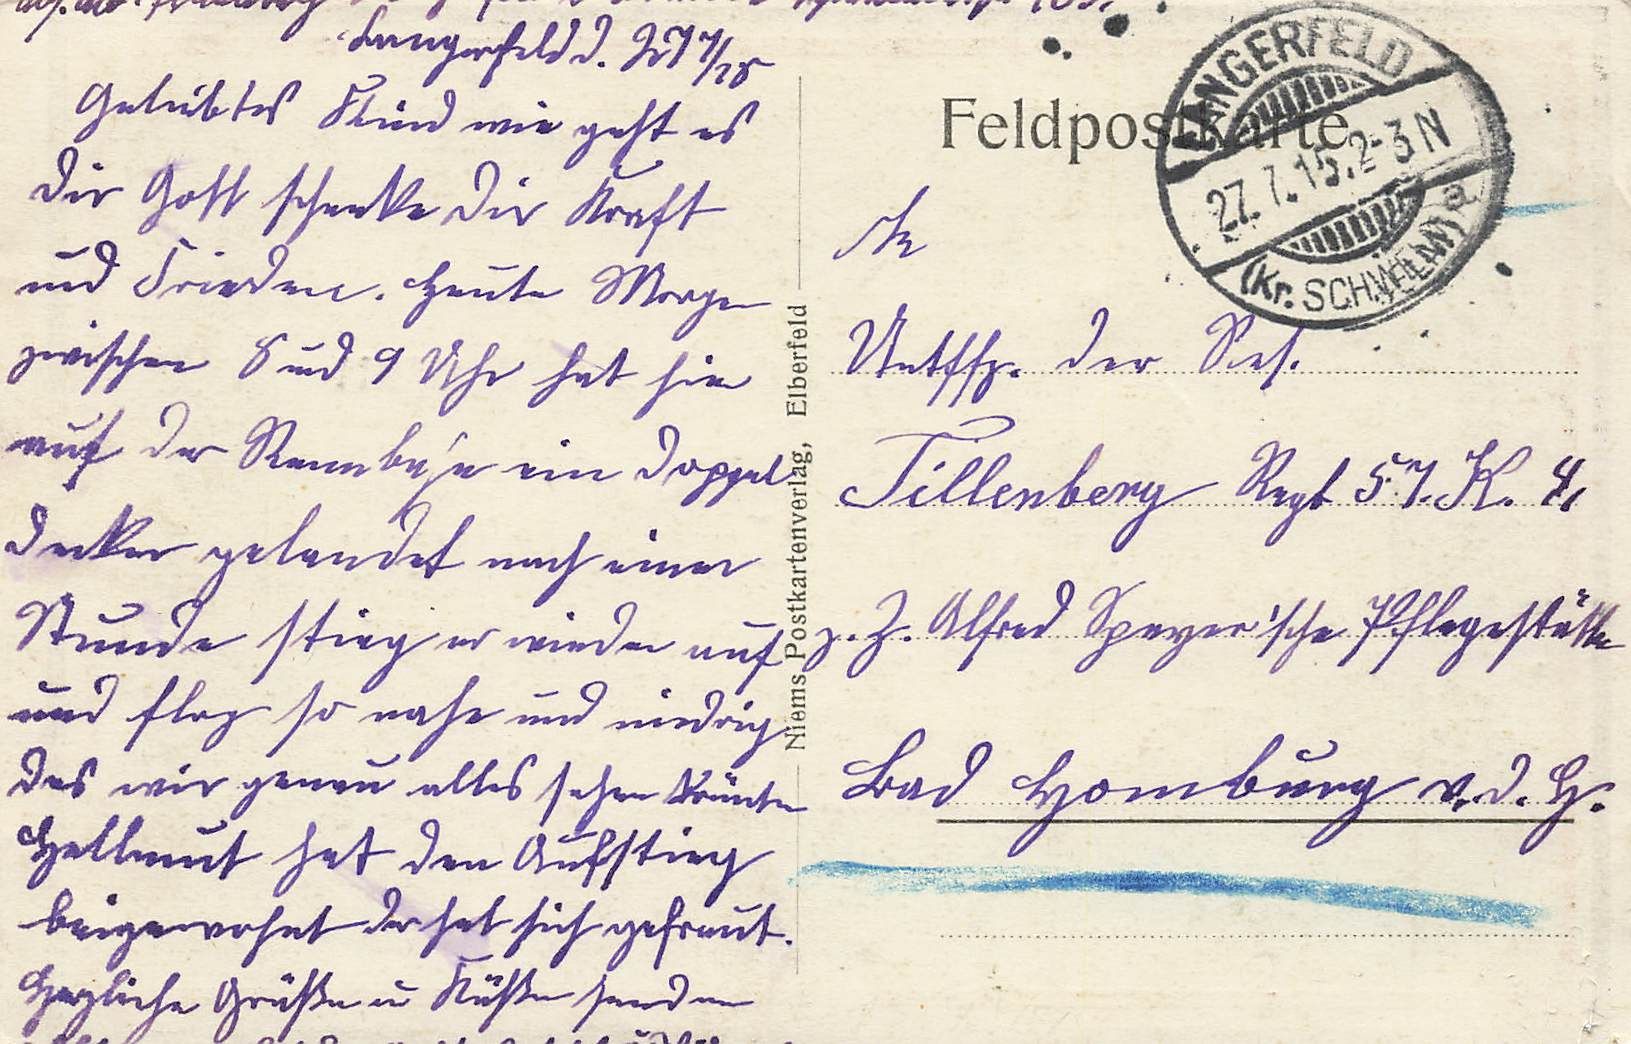 Langerfeld d. 27 7/15
Geliebtes Kind wie geht es
Dir Gott schenke Dir Kraft
und Frieden. Heute Morgen
zwischen 8 und 9 Uhr hat hier
auf der Rennbahn ein Doppel
decker gelandet nach einer
Stunde stieg er wieder auf
und flog so nahe und niedrig
das wir genau alles sehen konnten
Hellmut hat den Aufstieg
beigewohnt der hat sich gefreut.
Herzliche Grüße u Küße senden
Niems Postkartenverlag, Elberfeld
Feldpostkarte
LANGERFELD
27.7.15.2-3N
(Kr. SCHWELM) a
An
Untffz. der Res.
Tillenberg Regt 57. K. 4.
z. Z. Alfred Speyer'sche Pflegestätte
Bad Homburg v. d. H.